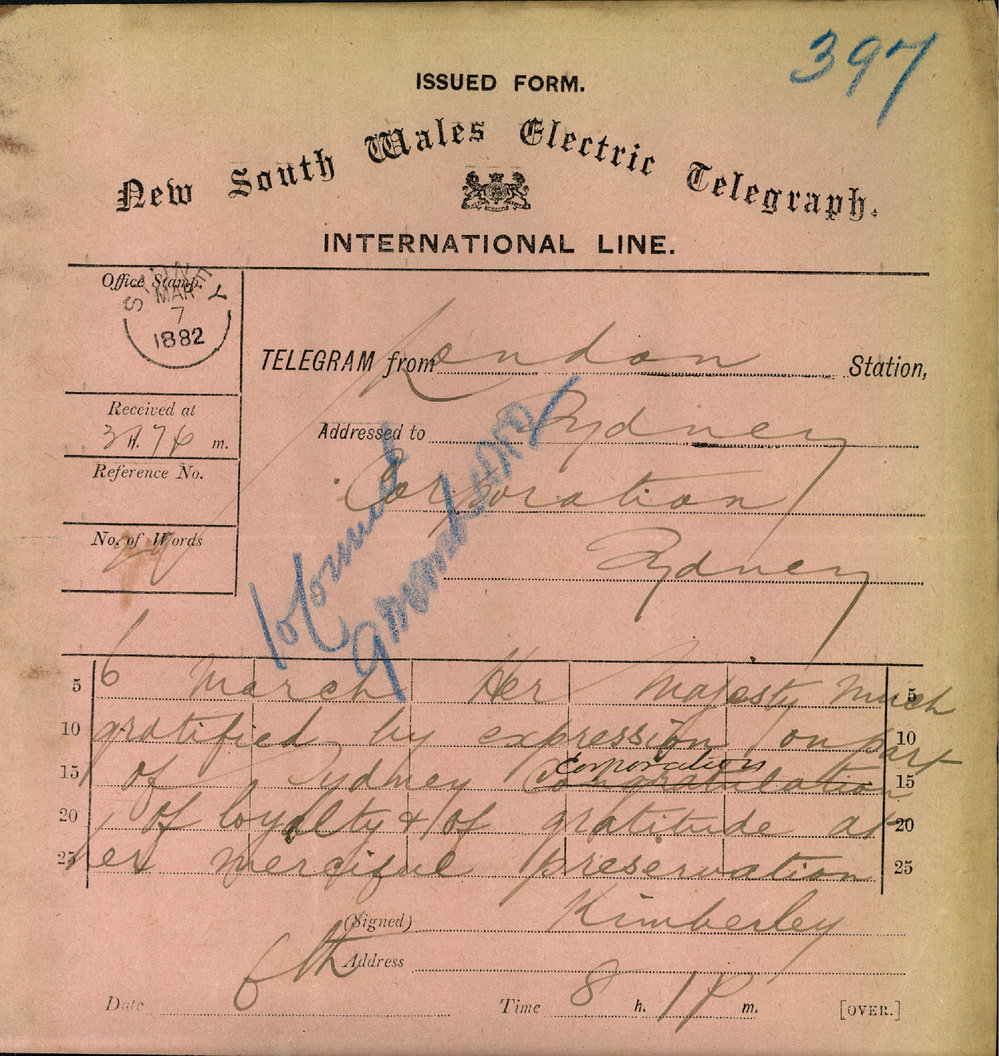 397
ISSUED FORM.
New South Wales Electric Telegraph.
INTERNATIONAL LINE.
Office Stamp.
SYDNEY
MAR
7
1882
TELEGRAM from London Station,
Received at
H. m.
Addressed to Sydney
Reference No.
Corporation
No. of Words
Sydney
5 6 March Her Majesty much 5
10 gratified by expression on part 10
corporation
15 of Sydney Congratulation 15
20 of loyalty & of gratitude at 20
25 her merciful preservation 25
(Signed) Kimberley
Address
Date 6th Time 8 h. 1 P m. [OVER.]